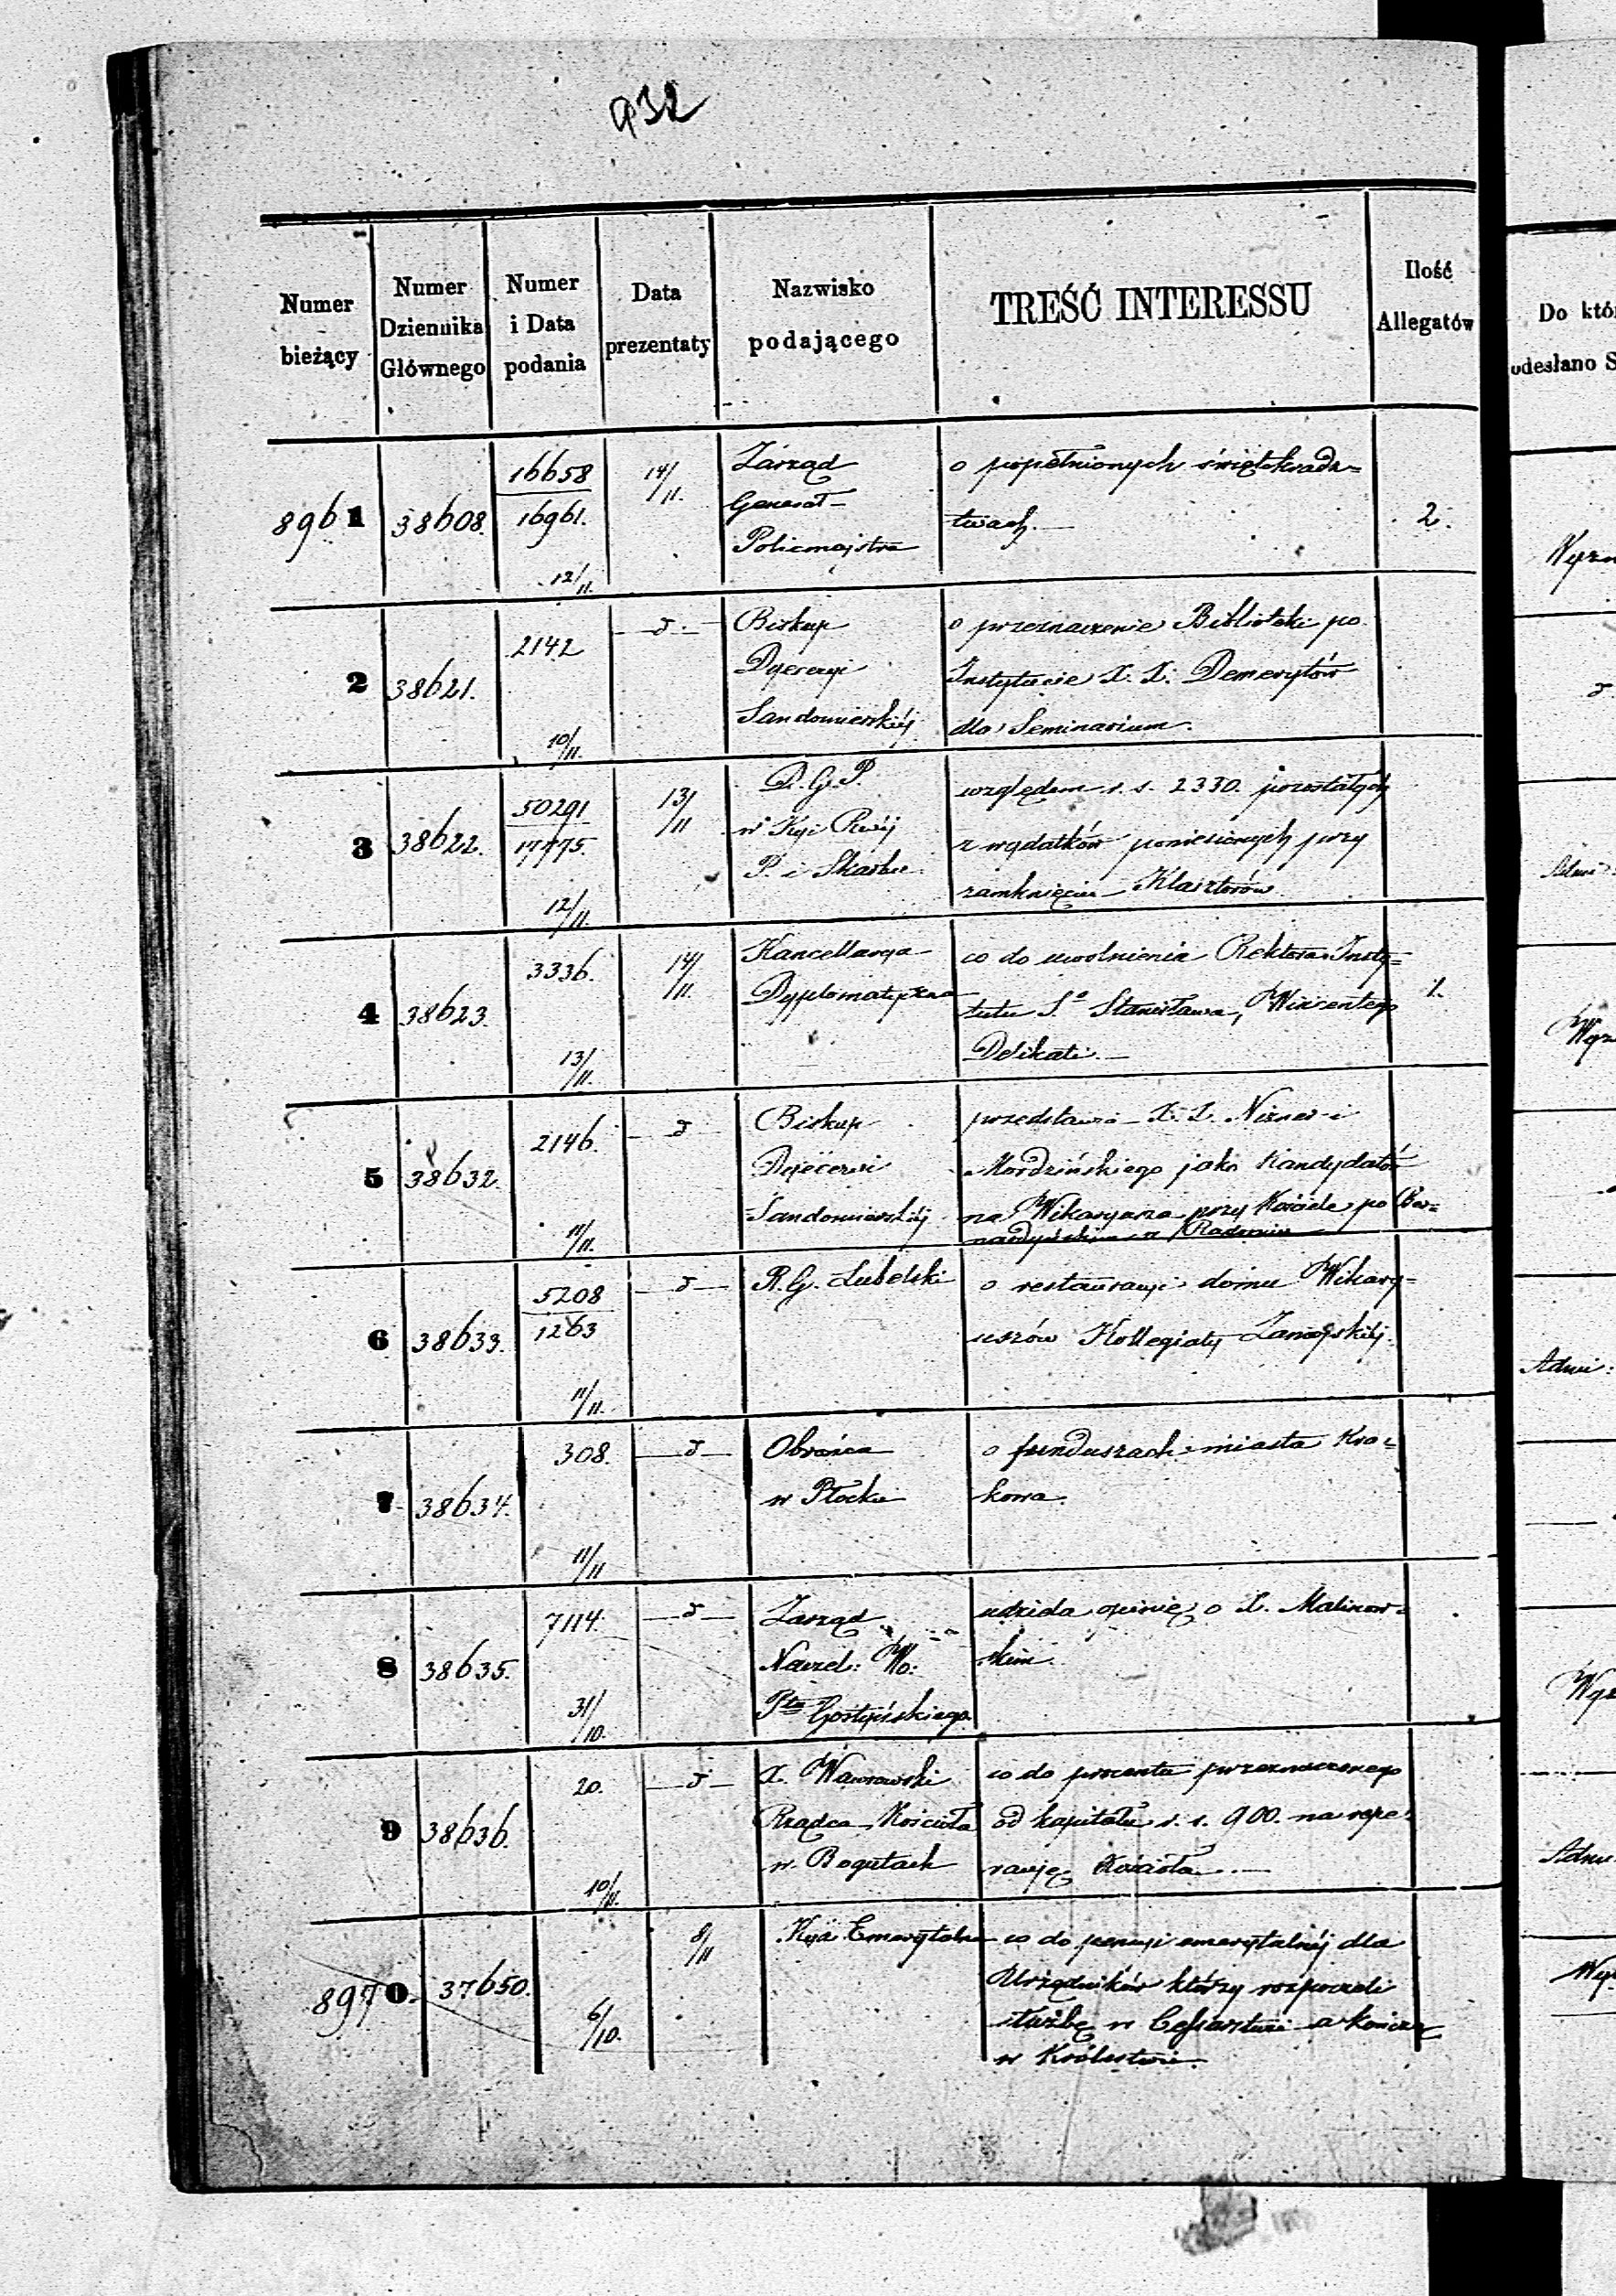 932
Numer bieżący
Numer Dziennika Głównego
Numer i Data podania
Data prezentaty
Nazwisko podającego
TREŚĆ INTERESSU
Ilość Allegatów
Do któ
odesłano S
8961 38608. 16658 14/11. Zarząd o popełnionych świętokradz=
16961. Generał twach. 2.
12/11. Policmajstra
2 38621. 2142 d Biskup o przeznaczenie Biblioteki po
Dyecezyi Instytucie X. X. Demerytów
10/11. Sandomierskiéj dla Seminarium.
3 38622. 50291 13/11 D. G. P. względem r. s. 2330. pozostałych
17775. w Kyi Rwéj z wydatków poniesionych przy
12/11. P. i Skarbu zamknięciu Klasztorów
4 38623. 3336. 14/11. Kancellarya co do uwolnienia Rektora Insty=
Dyplomatyczna tutu Sº Stanisława, Wincentego 1.
13/11. Delikati.
5 38632. 2146. d Biskup przedstawia X. X. i
Dyecezyi Mordzińskiego jako Kandydatów
Sandomierskiéj na Wikaryusza przy Kościele po Ber=
11/11. nardyńskim w Radomiu
6 38633. 5208 d R. G. Lubelski o restauracyi domu Wikary=
1263 uszów Kollegiaty Zamojskiéj.
11/11.
7 38634. 308. d Obrońca o funduszach miasta Kra=
w Płocku kowa.
11/11
8 38635. 7114. d Zarząd udziela opinię o X. Malinow=
Naczel: Wo: skim.
31/10. Ptu Gostyńskiego
9 38636. 20. d X. Wawrowski co do procentu przeznaczonego
Rządca Kościoła od kapitału r. s. 900. na repe=
10/11. w Bogutach racyję Kościoła.
8970. 37650. 8/11 Kya Emerytalna co do pensyi emerytalnéj dla
Urzędników którzy rozpoczęli
6/10. służbę w Cesarstwie a kończą
w Królestwie.